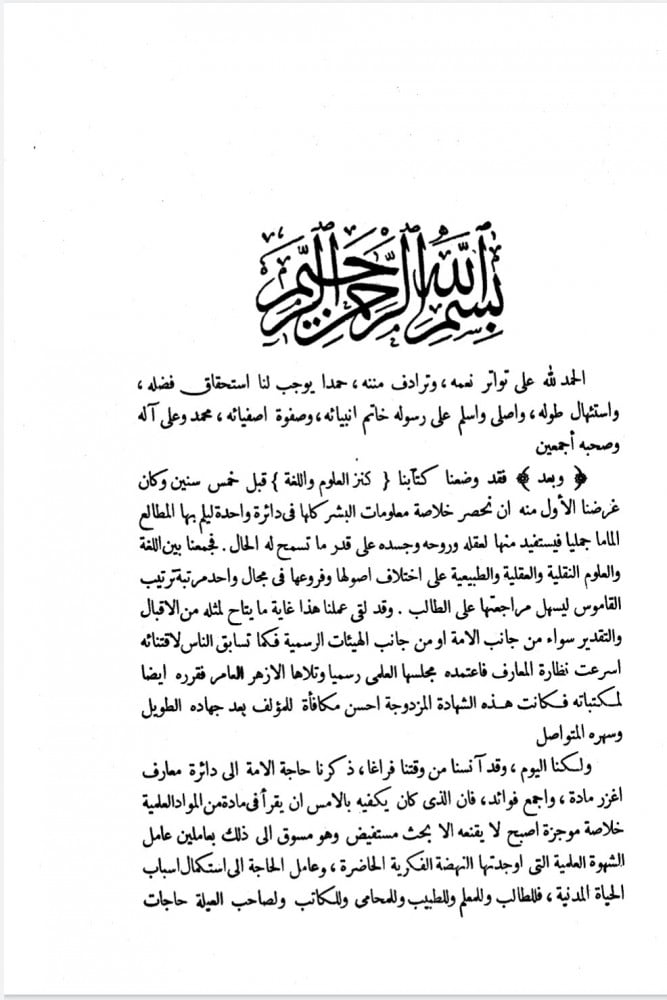 بسم الله الرحمن الرحيم
الحمد لله على تواتر نعمه، وترادف مننه، حمدا يوجب لنا استحقاق فضله،
واستئهال طوله، واصلى واسلم على رسوله خاتم انبيائه، وصفوة اصفيائه، محمد وعلى آله
وصحبه أجمعين
﴿ وبعد ﴾ فقد وضعنا كتابنا { كنز العلوم واللغة } قبل خمس سنين وكان
غرضنا الأول منه ان نحصر خلاصة معلومات البشر كلها فى دائرة واحدة ليلم بها المطالع
الماما جمليا فيستفيد منها لعقله وروحه وجسده على قدر ما تسمح له الحال . فجمعنا بين اللغة
والعلوم النقلية والعقلية والطبيعية على اختلاف اصولها وفروعها فى مجال واحد مرتبة ترتيب
القاموس ليسهل مراجعتها على الطالب . وقد لقى عملنا هذا غاية ما يتاح لمثله من الاقبال
والتقدير سواء من جانب الامة او من جانب الهيئات الرسمية فكما تسابق الناس لاقتنائه
اسرعت نظارة المعارف فاعتمده مجلسها العلمى رسميا وتلاها الازهر العامر فقرره ايضا
لمكتباته فكانت هذه الشهادة المزدوجة احسن مكافأة للمؤلف بعد جهاده الطويل
وسهره المتواصل
ولكنا اليوم ، وقد آنسنا من وقتنا فراغا، ذكرنا حاجة الامة الى دائرة معارف
اغزر مادة ، واجمع فوائد، فان الذى كان يكفيه بالامس ان يقرأ فى مادة من المواد العلمية
خلاصة موجزة اصبح لا يقنعه الا بحث مستفيض وهو مسوق الى ذلك بعاملين عامل
الشهوة العلمية التى اوجدتها النهضة الفكرية الحاضرة ، وعامل الحاجة الى استكمال اسباب
الحياة المدنية ، فللطالب وللمعلم وللطبيب وللمحامى وللكاتب ولصاحب العيلة حاجات